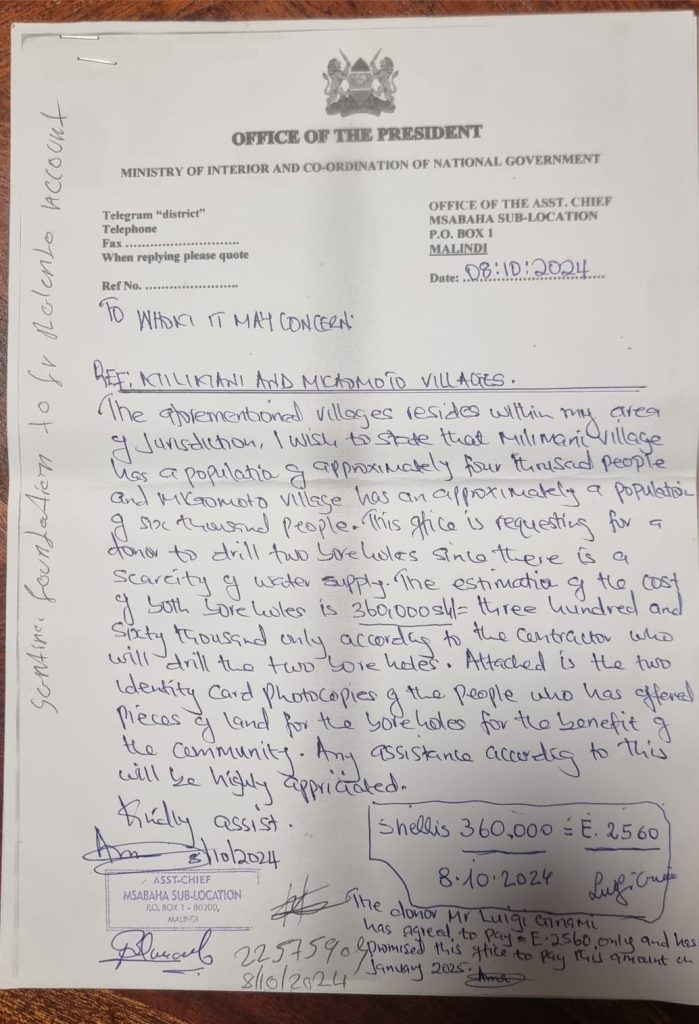 OFFICE OF THE PRESIDENT
MINISTRY OF INTERIOR AND CO-ORDINATION OF NATIONAL GOVERNMENT
Telegram "district"
Telephone
Fax ............................
When replying please quote
Ref No. .......................
OFFICE OF THE ASST. CHIEF
MSABAHA SUB-LOCATION
P.O. BOX 1
MALINDI
Date: 08:10:2024
TO WHOM IT MAY CONCERN:
REF: MILIMANI AND MKAOMOTO VILLAGES.
The aforementioned villages resides within my area
of Jurisdiction, I wish to state that Milimani Village
has a populatio of approximately four thousad people
and MKaomoto village has an approximately a population
of six thousand people. This office is requesting for a
donor to drill two boreholes since there is a
scarcity of water supply. The estimatio of the cost
of both boreholes is 360,000sh/= three hundred and
sixty thousand only accordig to the contractor who
will drill the two bore holes. Attached is the two
identity card photocopies of the people who has offered
pieces of land for the boreholes for the benefit of
the community. Any assistance accordig to this
will be highly appriciated.
Kindly assist.
8/10/2024
ASST-CHIEF
MSABAHA SUB-LOCATION
P.O. BOX 1 - 80200,
MALINDI
Shellis 360,000 = E. 2560
8.10.2024
The donor Mr Luigi
has agreed to pay = E.2560 only and has
promised this office to pay this amount in
January 2025.
22575908
8/10/2024
foundation to account